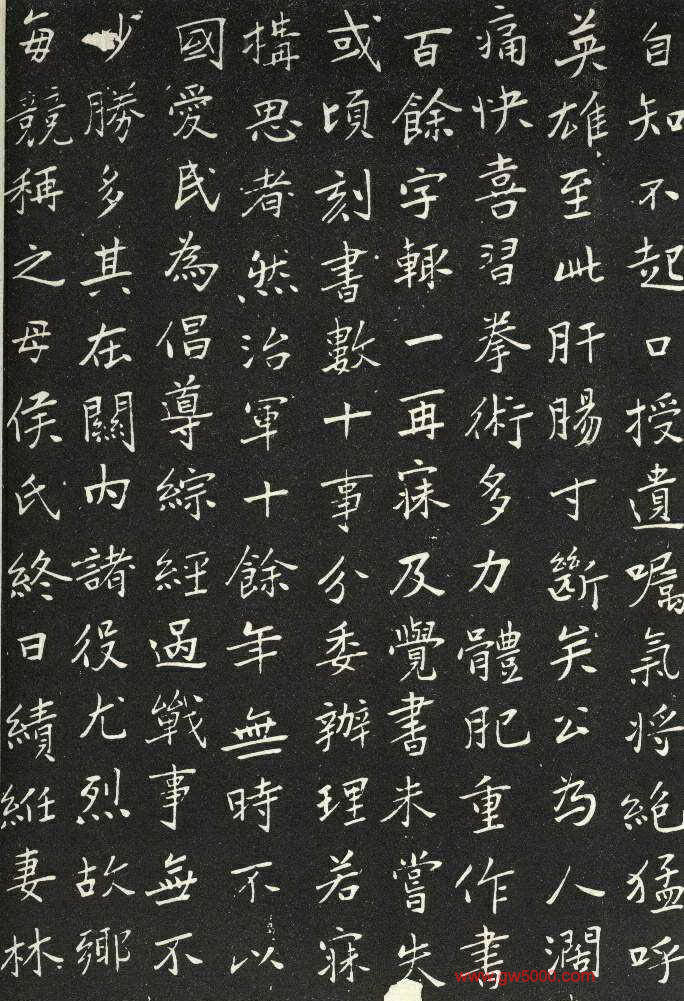 自知不起口授遺囑氣將絕猛呼
英雄至此肝腸寸斷矣公為人濶
痛快喜習拳術多力體肥重作書
百餘字輒一再寐及覺書未嘗失
或頃刻書數十事分委辦理若寐
構思者然治軍十餘年無時不以
國愛民為倡導綜經過戰事無不
少勝多其在關內諸役尤烈故鄉
每競稱之母侯氏終日績維妻林
www.gw5000.com